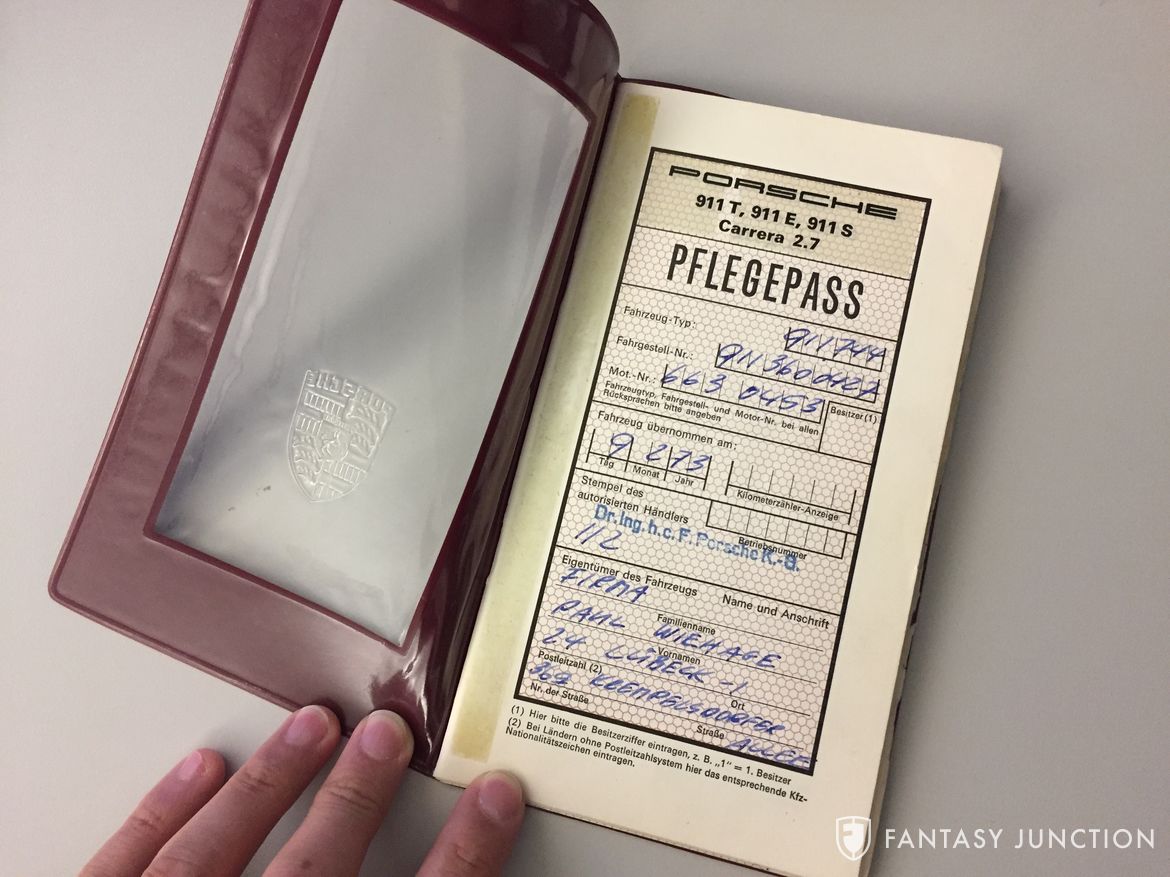 PORSCHE
911 T, 911 E, 911 S
Carrera 2.7
PFLEGEPASS
Fahrzeug-Typ: 911744
Fahrgestell-Nr.: 9113600487
Mot.-Nr.: 663 0453
Fahrzeugtyp, Fahrgestell- und Motor-Nr. bei allen
Rücksprachen bitte angeben
Besitzer (1)
Fahrzeug übernommen am:
9 2 73
Tag Monat Jahr
Kilometerzähler-Anzeige
Stempel des
autorisierten Händlers
Dr.Ing.h.c.F.Porsche K.-G.
Betriebsnummer
112
Eigentümer des Fahrzeugs
Name und Anschrift
FIRMA
Familienname
PAUL WIEHAGE
Vornamen
24 LÜBECK-1
Postleitzahl (2) Ort
KREMPELSDORFER
Nr. der Straße Straße
ALLEE
(1) Hier bitte die Besitzerziffer eintragen, z. B. „1" = 1. Besitzer
(2) Bei Ländern ohne Postleitzahlsystem hier das entsprechende Kfz-
Nationalitätszeichen eintragen.
PORSCHE
FANTASY JUNCTION